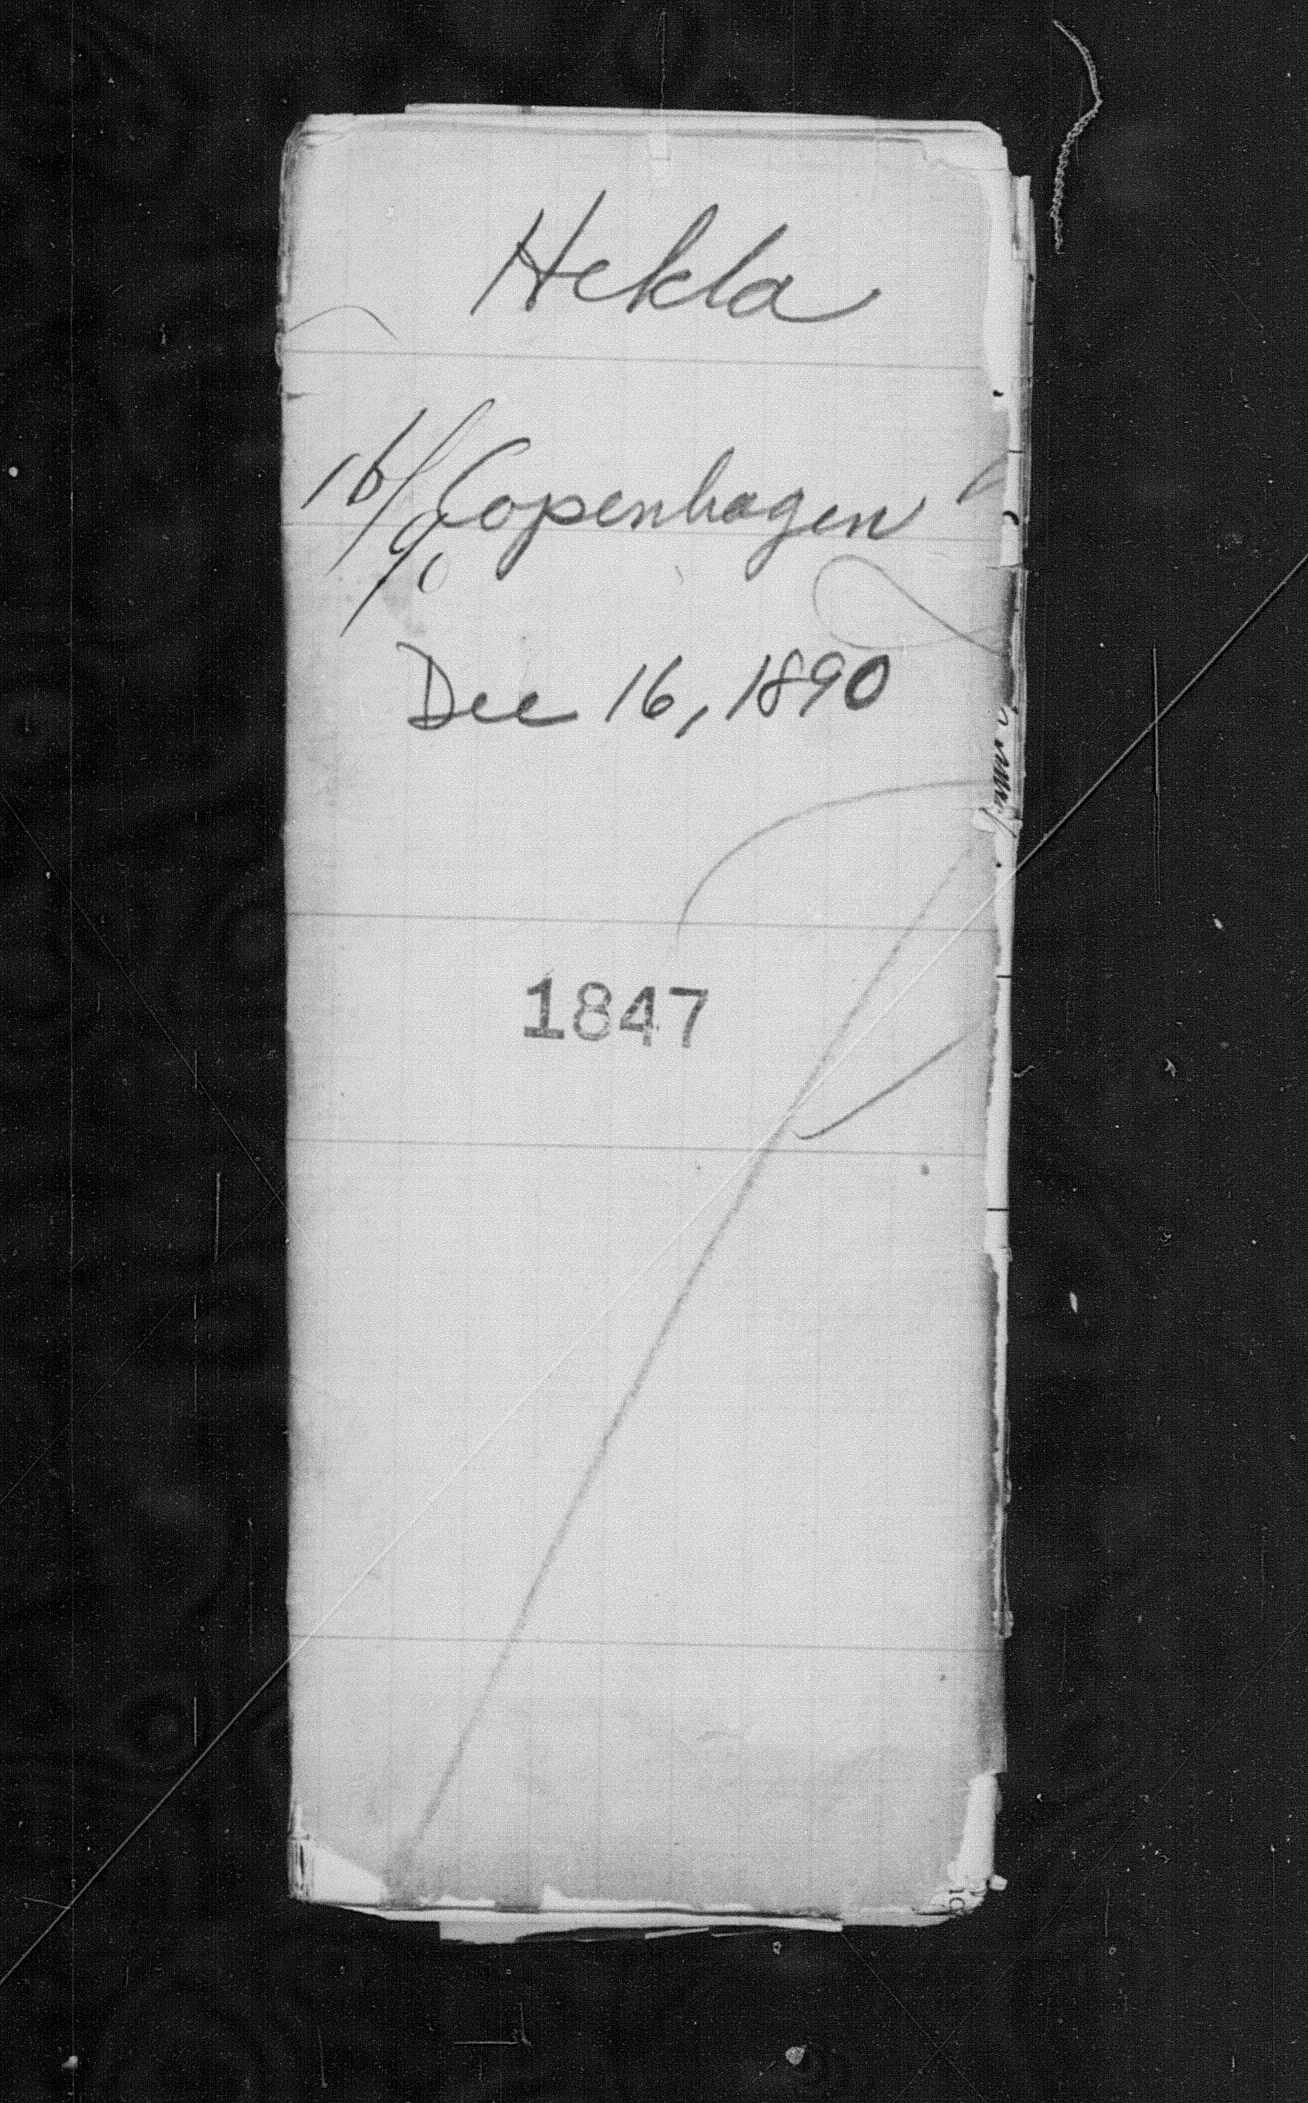 Hekla
Copenhagen
Dec 16, 1890
1847